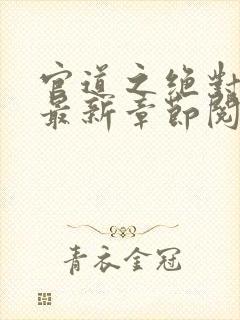 官道之绝对
最新章节阅
青衣金冠